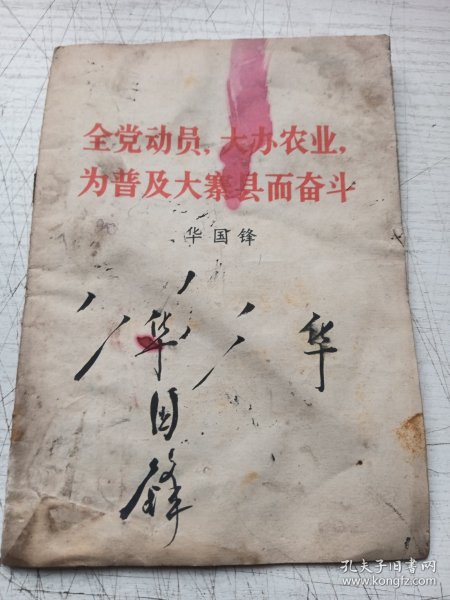 全党动员，大办农业，
为普及大寨县而奋斗
华国锋
华 华
国
锋
孔夫子旧书网
www.kongfz.com